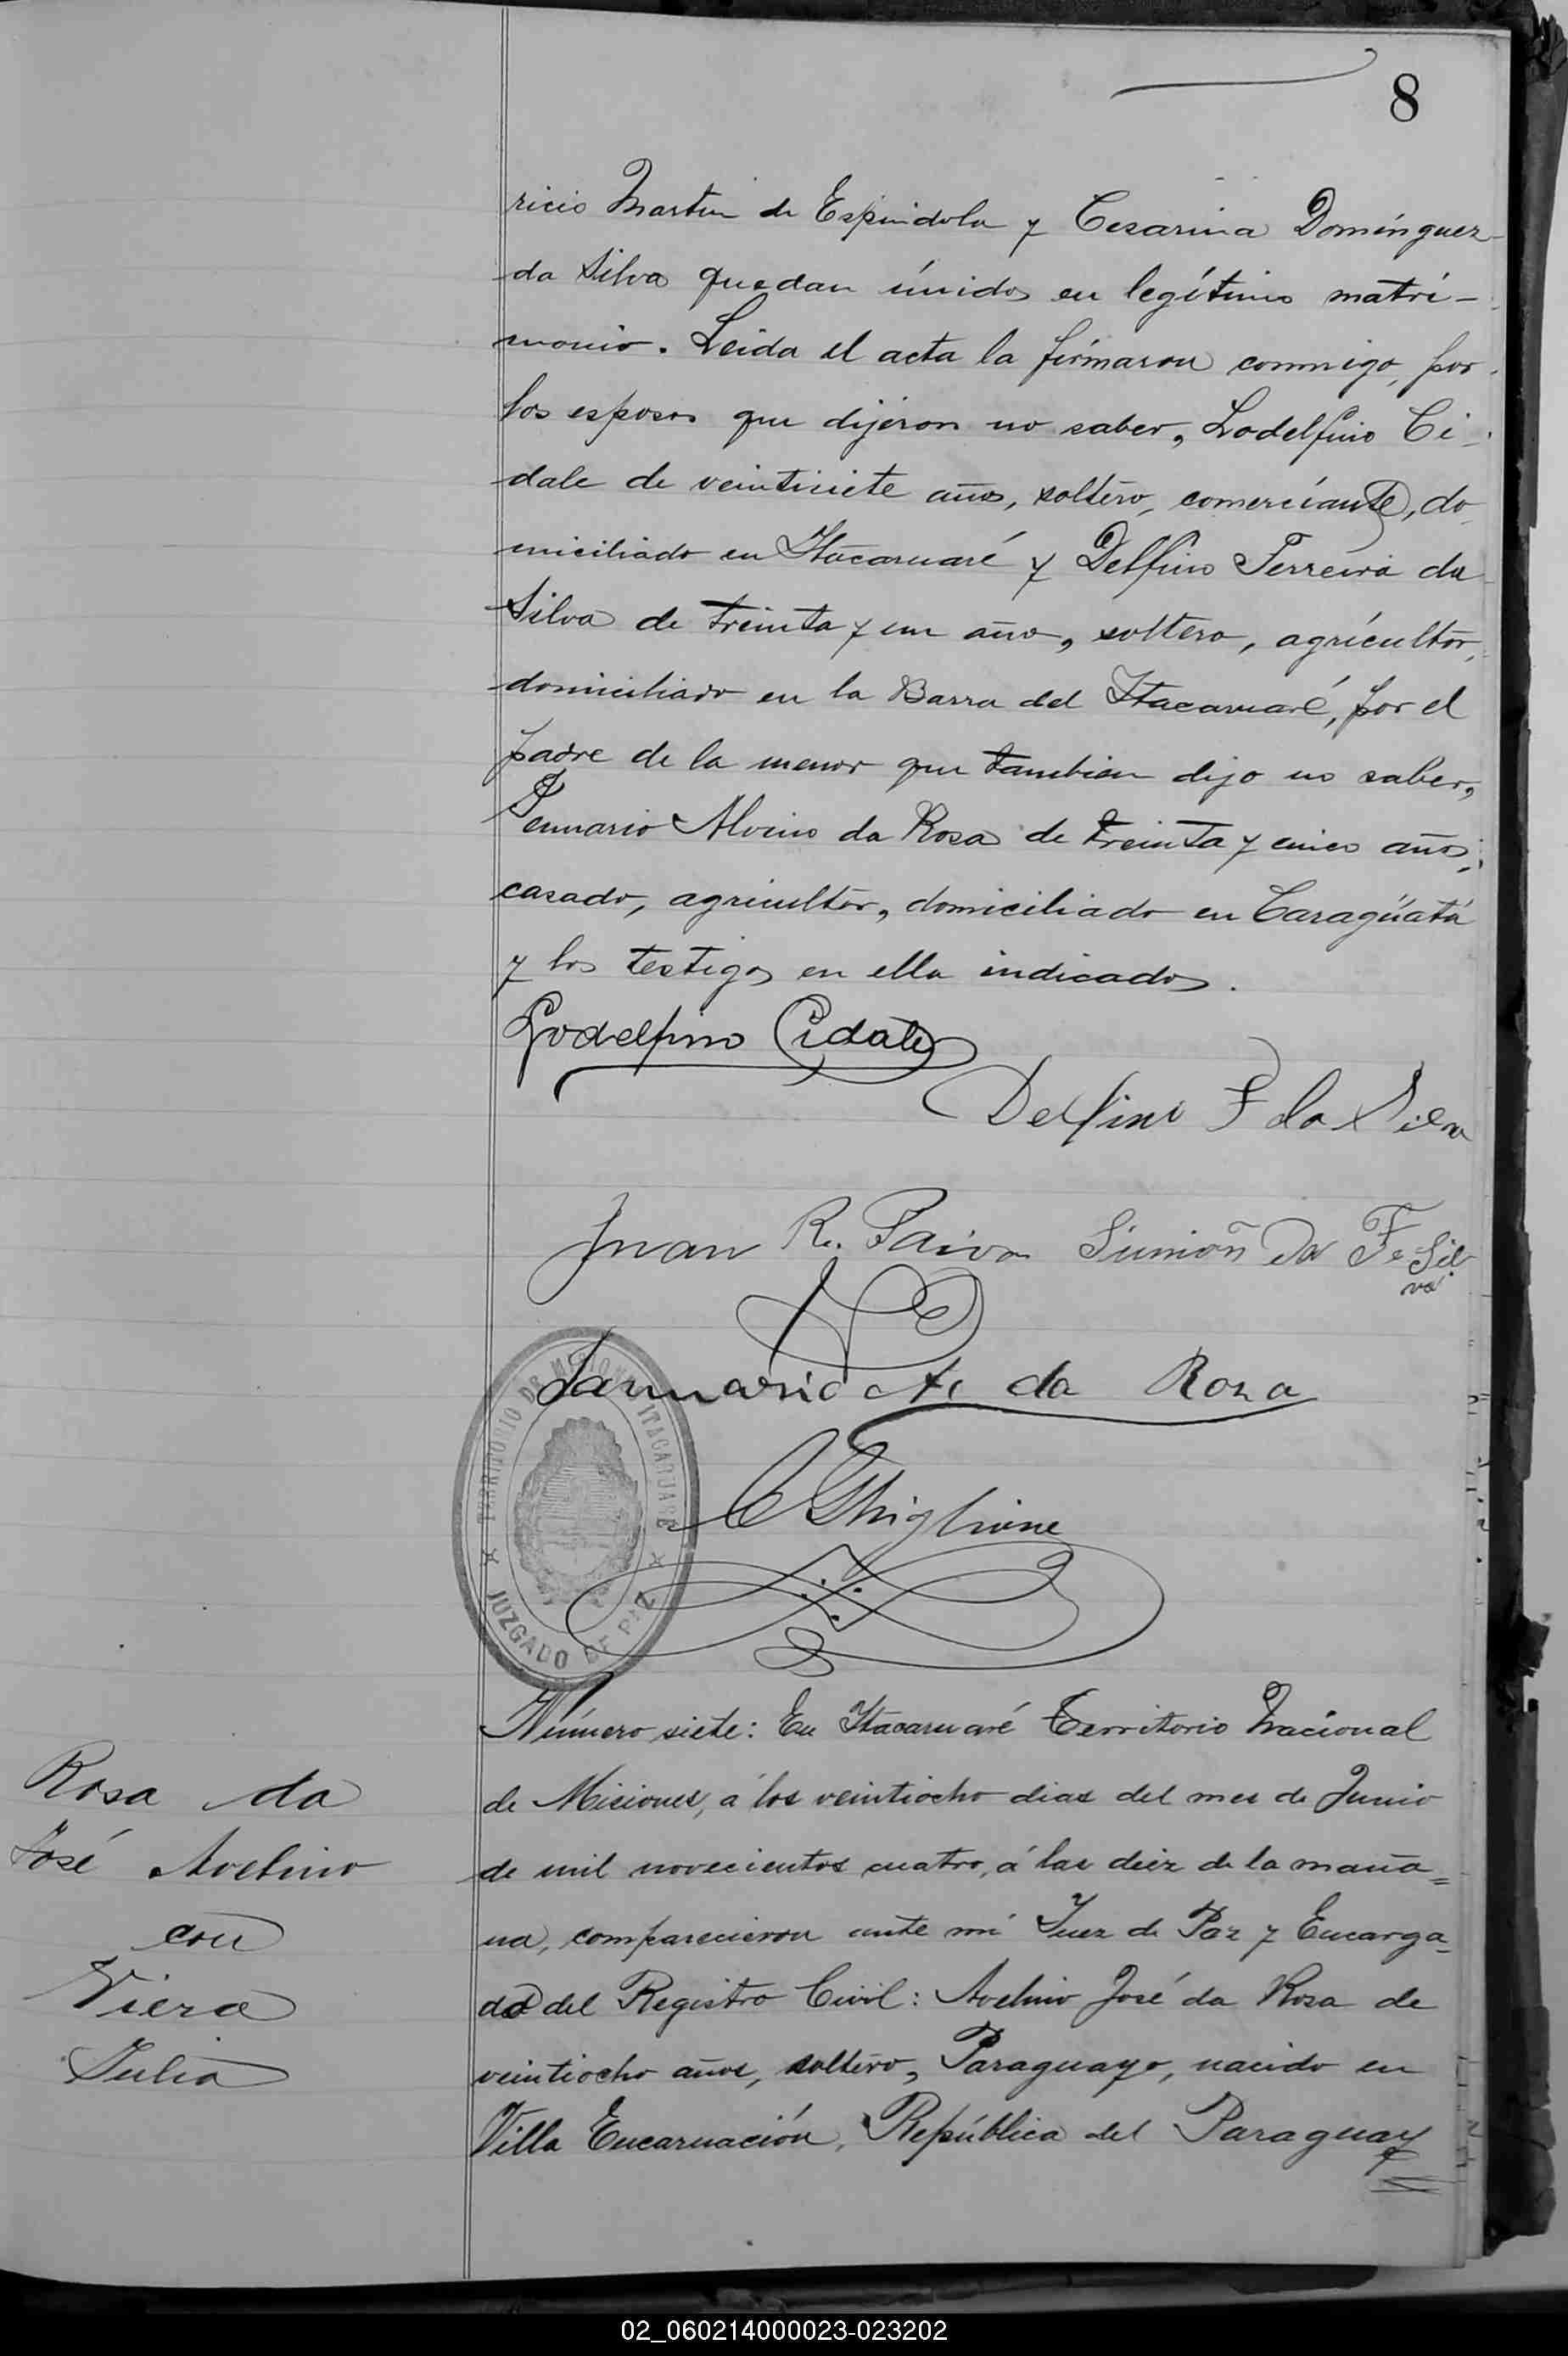 8
ricio Martin de Espindola y Cesarina Domínguez
da Silva quedan únidos en legítimo matri-
monio. Leida el acta la firmaron conmigo, por
los esposos que dijeron no saber, Lodelfino Ci-
dale de veintisiete años, soltero, comerciante, do
miciliado en Itacaruaré y Delfino Ferreira da
Silva de treinta y un año, soltero, agricultor,
domiciliado en la Barra del Itacaruaré, por el
padre de la menor que tambien dijo no saber,
Jenuario Alvino da Rosa de treinta y cinco años,
casado, agricultor, domiciliado en Caragüatá
y los testigos en ella indicados.
Lodelfino Cidale
Delfino F da Silva
Juan R. Paiva Simión Da Fe Sil
va
Januario A. da Roza
C Ghiglione
TERRITORIO DE MISIONES ITACARUARE
JUZGADO DE PAZ
Rosa da
José Avelino
con
Viera
Julia
Número siete: En Itacaruaré Territorio Nacional
de Misiones, á los veintiocho dias del mes de Junio
de mil novecientos cuatro, á las diez de la maña=
na, comparecieron ante mi Juez de Paz y Encarga=
do del Registro Civil: Avelino José da Rosa de
veintiocho años, soltero, Paraguayo, nacido en
Villa Encarnación, República del Paraguay
02_060214000023-023202